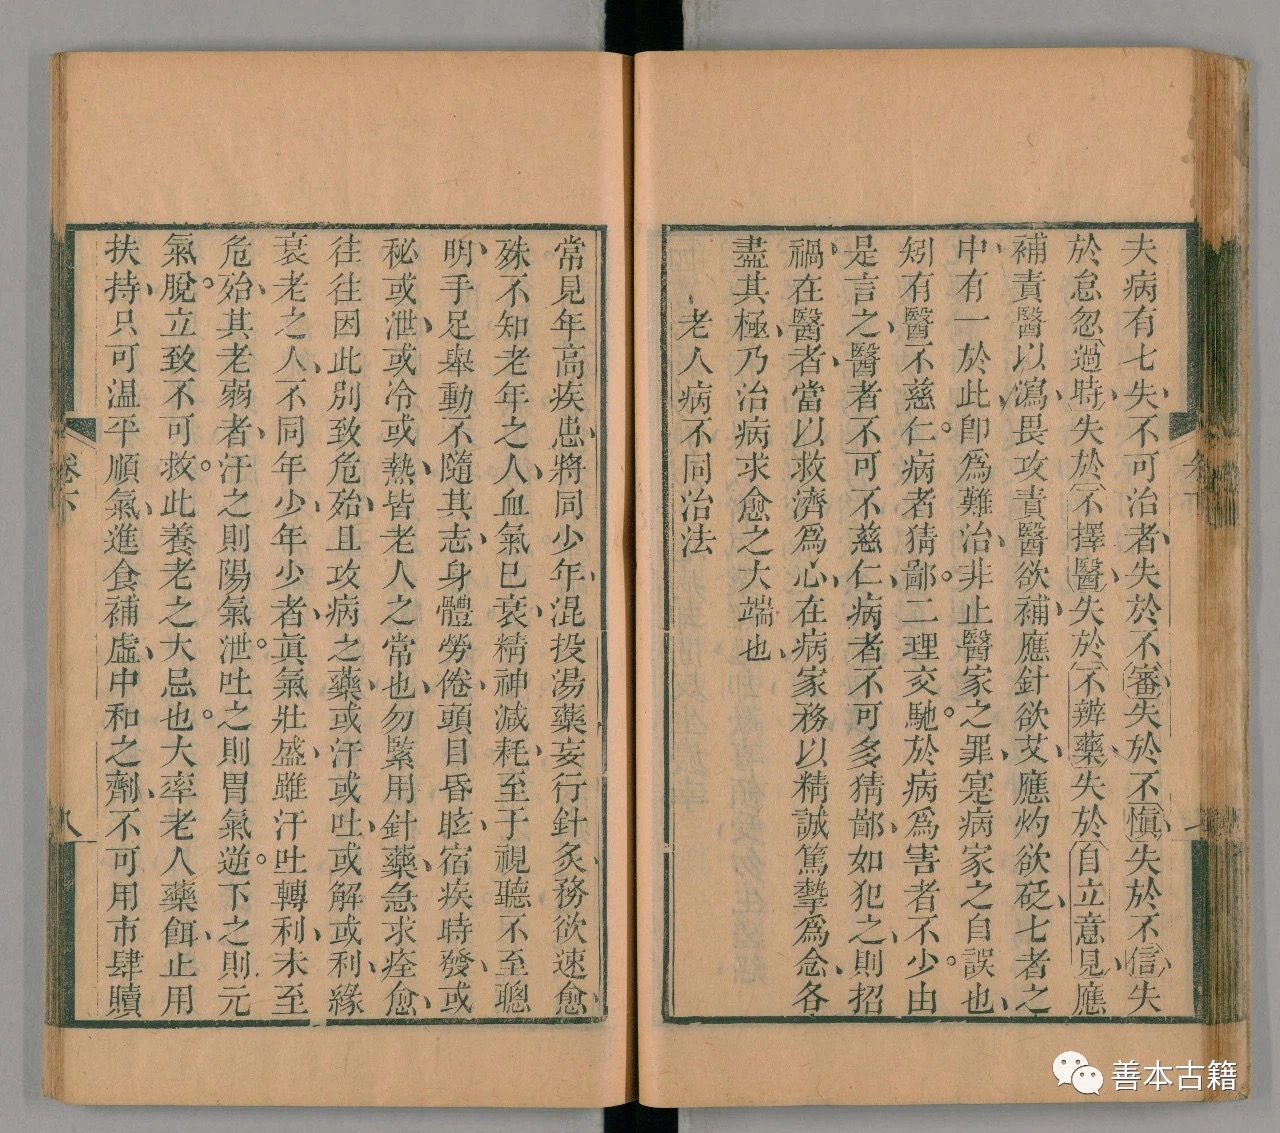 夫病有七失不可治者失於不審失於不慎失於不信失
於怠忽過時失於不擇醫失於不辨藥失於自立意見應
補責醫以瀉畏攻責醫欲補應針欲艾應灼欲砭七者之
中有一於此卽爲難治非止醫家之罪寔病家之自誤也
矧有醫不慈仁病者猜鄙二理交馳於病爲害者不少由
是言之醫者不可不慈仁病者不可多猜鄙如犯之則招
禍在醫者當以救濟爲心在病家務以精誠篤摰爲念各
盡其極乃治病求愈之大端也
老人病不同治法
常見年高疾患將同少年混投湯藥妄行針灸務欲速愈
殊不知老年之人血氣已衰精神減耗至于視聽不至聰
明手足舉動不隨其志身體勞倦頭目昏眩宿疾時發或
秘或泄或冷或熱皆老人之常也勿緊用針藥急求痊愈
往往因此別致危殆且攻病之藥或汗或吐或解或利緣
衰老之人不同年少年少者眞氣壯盛雖汗吐轉利未至
危殆其老弱者汗之則陽氣泄吐之則胃氣逆下之則元
氣脫立致不可救此養老之大忌也大率老人藥餌止用
扶持只可溫平順氣進食補虛中和之劑不可用市肆贖
卷下
八
善本古籍